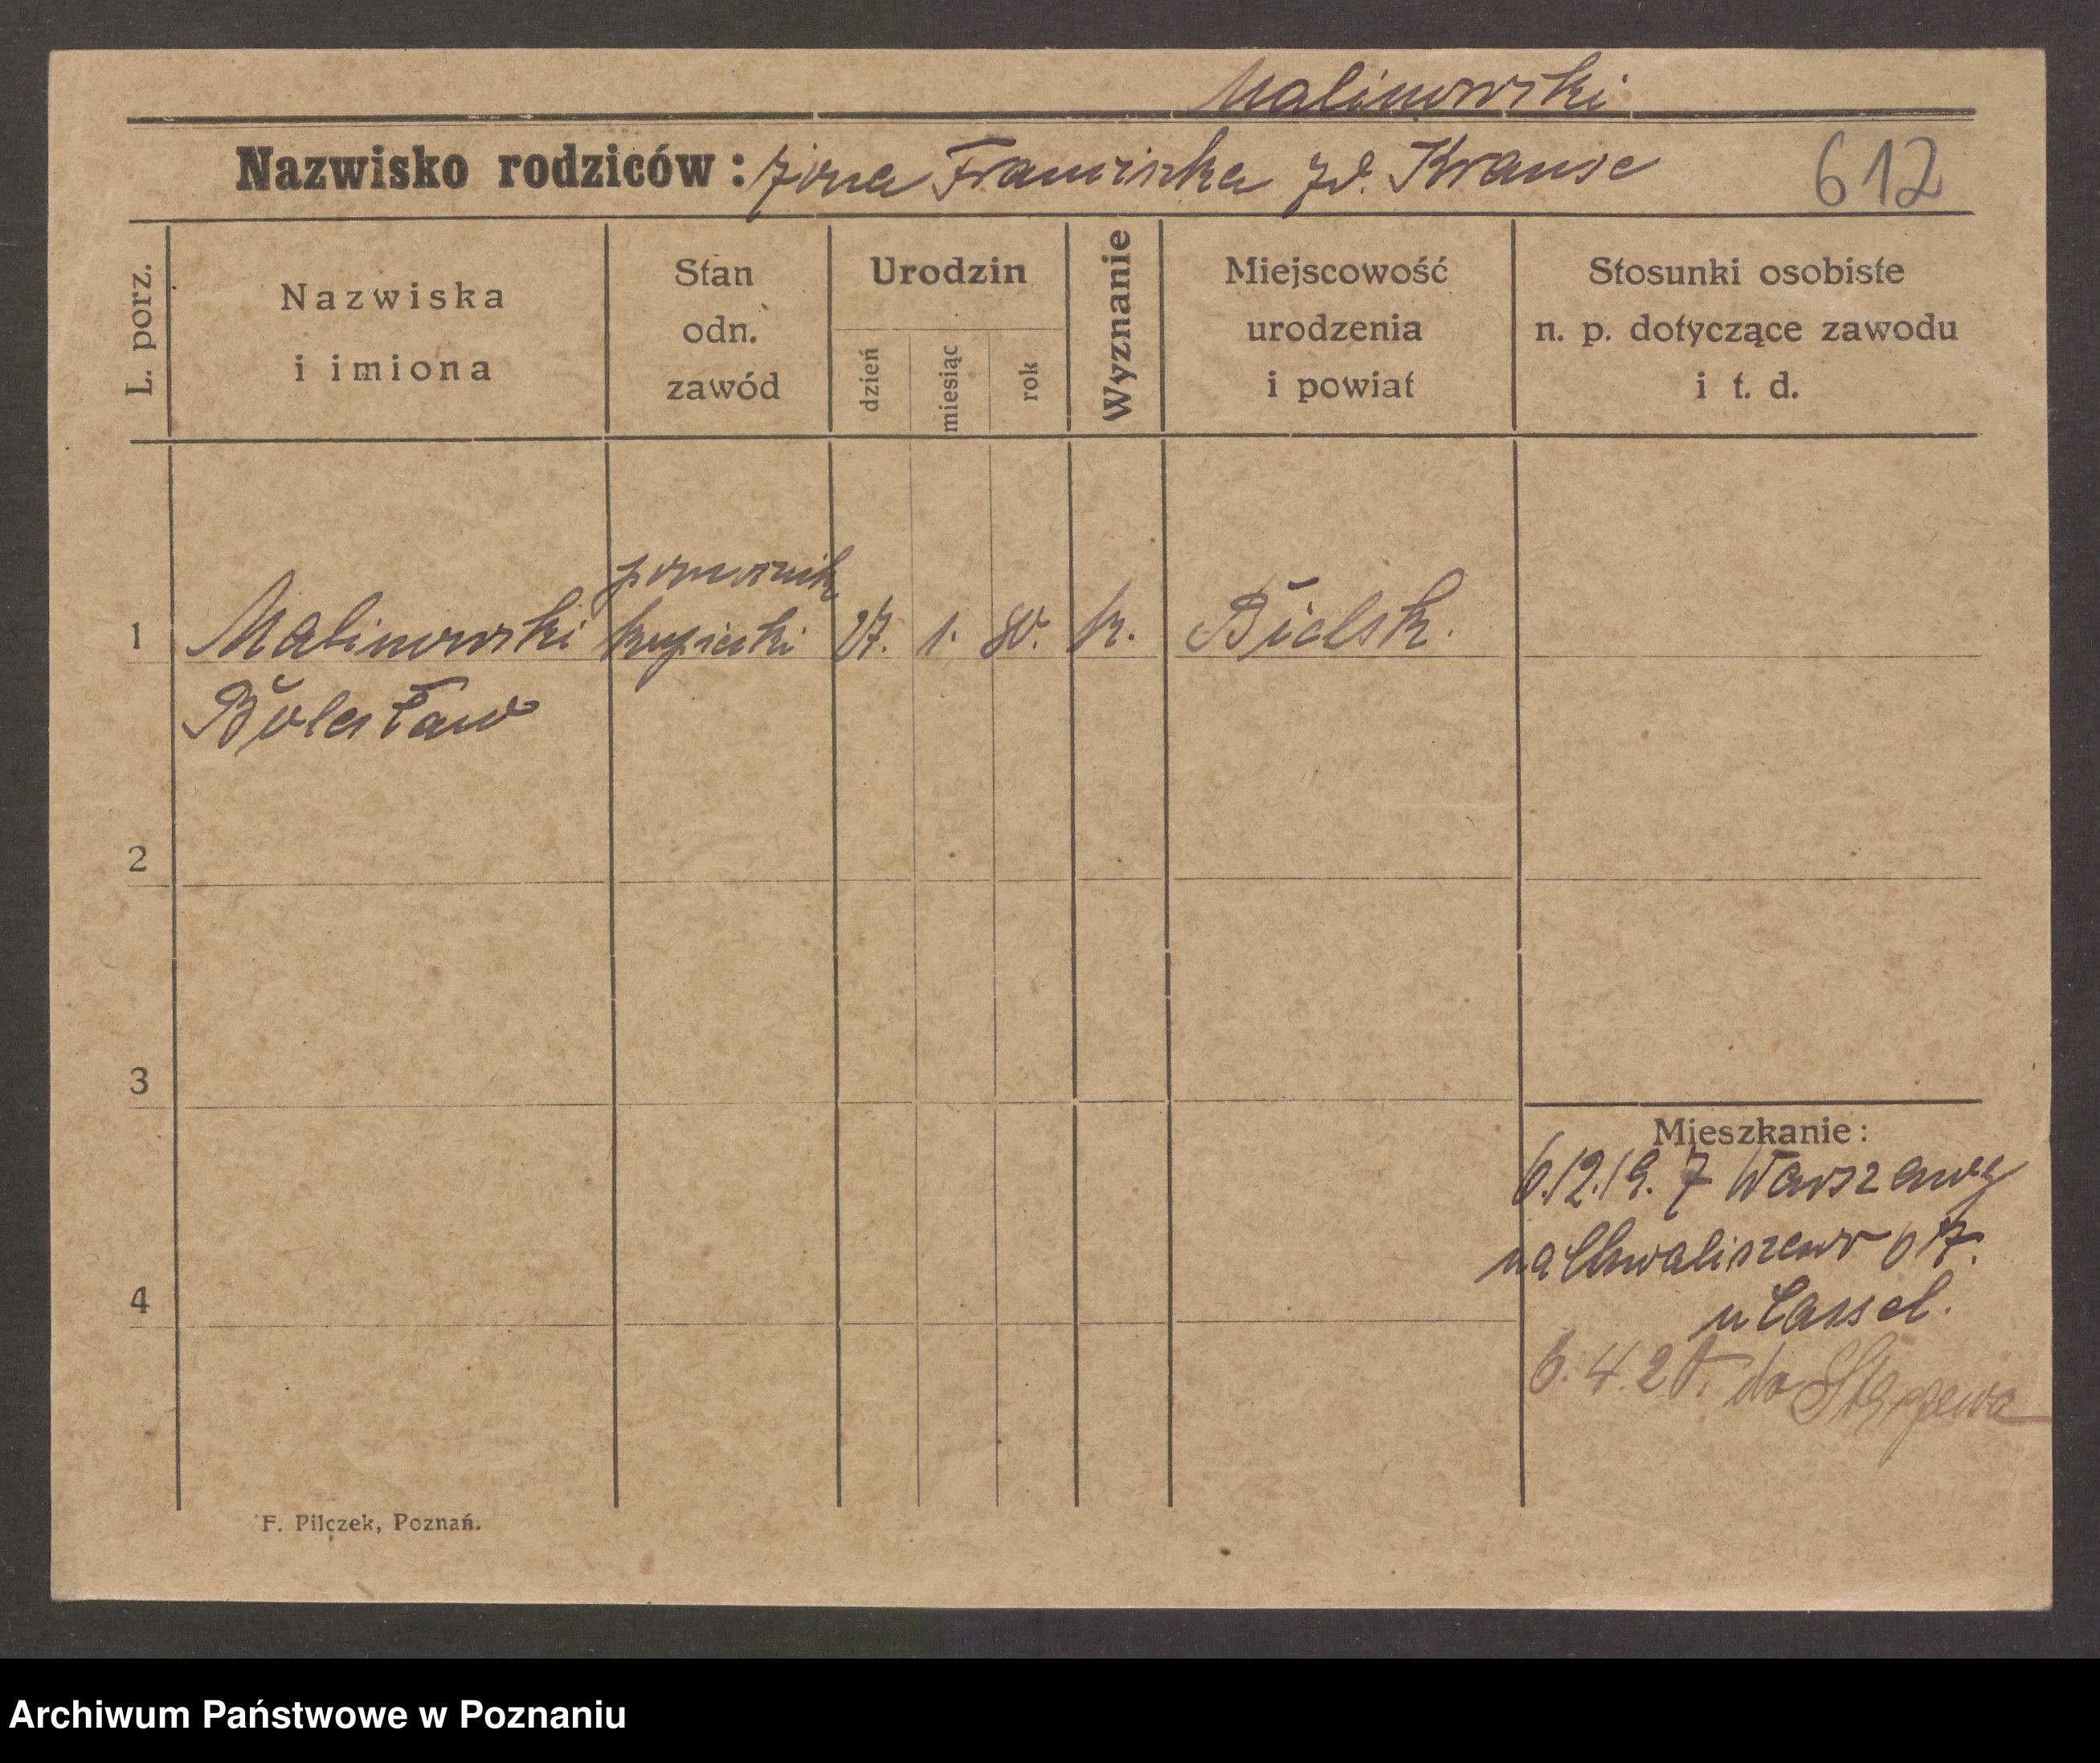 Malinowski
Nazwisko rodziców: żona Franciszka zd. Krause 612
L. porz.
Nazwiska
i imiona
Stan
odn.
zawód
Urodzin
dzień
miesiąc
rok
Wyznanie
Miejscowość
urodzenia
i powiat
Stosunki osobiste
n. p. dotyczące zawodu
i t. d.
pomocnik
1 Malinowski kupiecki 27. 1. 80. k. Bielsk.
Bolesław
2
3
Mieszkanie:
6.12.19. z Warszawy
na Chwaliszewo 67.
4
u Cassel.
6.4.20. do Stęszewa
F. Pilczek, Poznań.
Archiwum Państwowe w Poznaniu